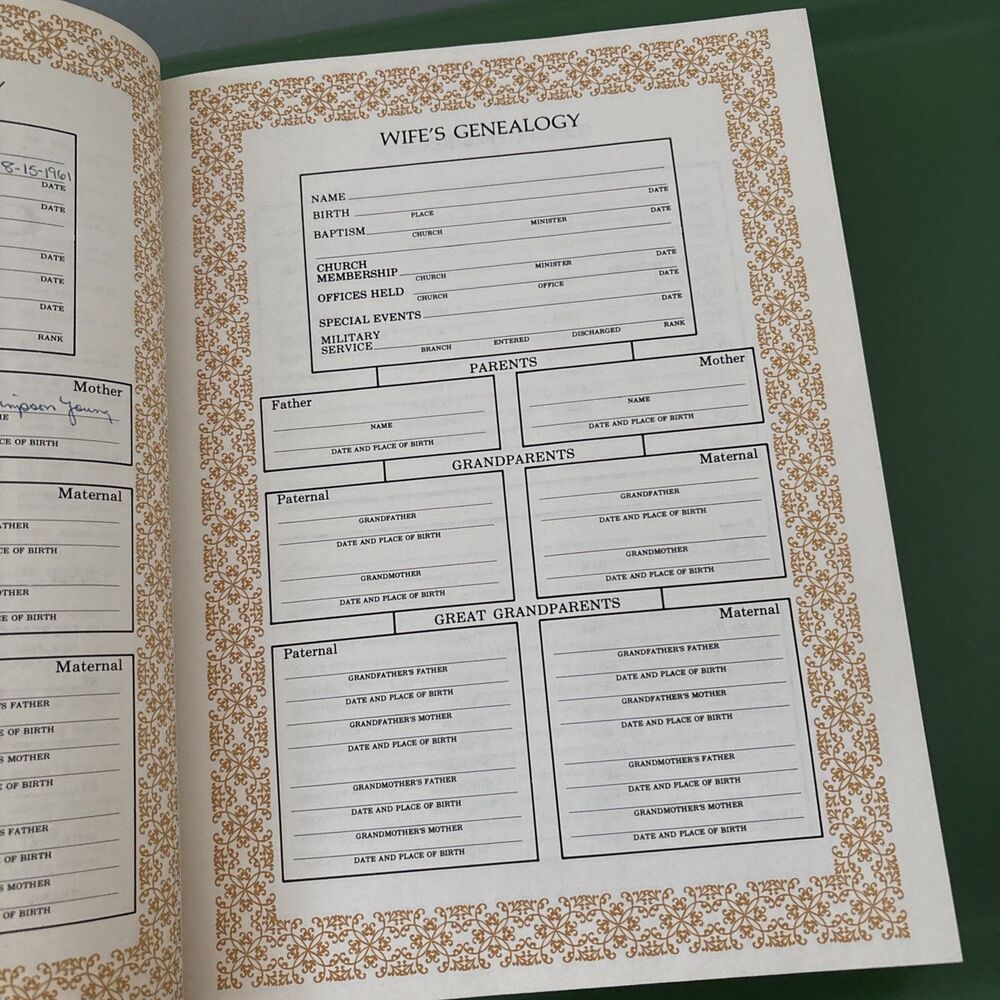 8-15-1961
DATE
DATE
DATE
DATE
DATE
RANK
Mother
Young
CE OF BIRTH
Maternal
CE OF BIRTH
E OF BIRTH
Maternal
'S FATHER
E OF BIRTH
S MOTHER
OF BIRTH
'S FATHER
OF BIRTH
S MOTHER
OF BIRTH
WIFE'S GENEALOGY
NAME
BIRTH PLACE DATE
BAPTISM CHURCH MINISTER DATE
CHURCH
MEMBERSHIP CHURCH MINISTER DATE
OFFICES HELD CHURCH OFFICE DATE
SPECIAL EVENTS DATE
MILITARY
SERVICE BRANCH ENTERED DISCHARGED RANK
PARENTS
Father
NAME
DATE AND PLACE OF BIRTH
Mother
NAME
DATE AND PLACE OF BIRTH
GRANDPARENTS
Paternal
GRANDFATHER
DATE AND PLACE OF BIRTH
GRANDMOTHER
DATE AND PLACE OF BIRTH
Maternal
GRANDFATHER
DATE AND PLACE OF BIRTH
GRANDMOTHER
DATE AND PLACE OF BIRTH
GREAT GRANDPARENTS
Paternal
GRANDFATHER'S FATHER
DATE AND PLACE OF BIRTH
GRANDFATHER'S MOTHER
DATE AND PLACE OF BIRTH
GRANDMOTHER'S FATHER
DATE AND PLACE OF BIRTH
GRANDMOTHER'S MOTHER
DATE AND PLACE OF BIRTH
Maternal
GRANDFATHER'S FATHER
DATE AND PLACE OF BIRTH
GRANDFATHER'S MOTHER
DATE AND PLACE OF BIRTH
GRANDMOTHER'S FATHER
DATE AND PLACE OF BIRTH
GRANDMOTHER'S MOTHER
DATE AND PLACE OF BIRTH